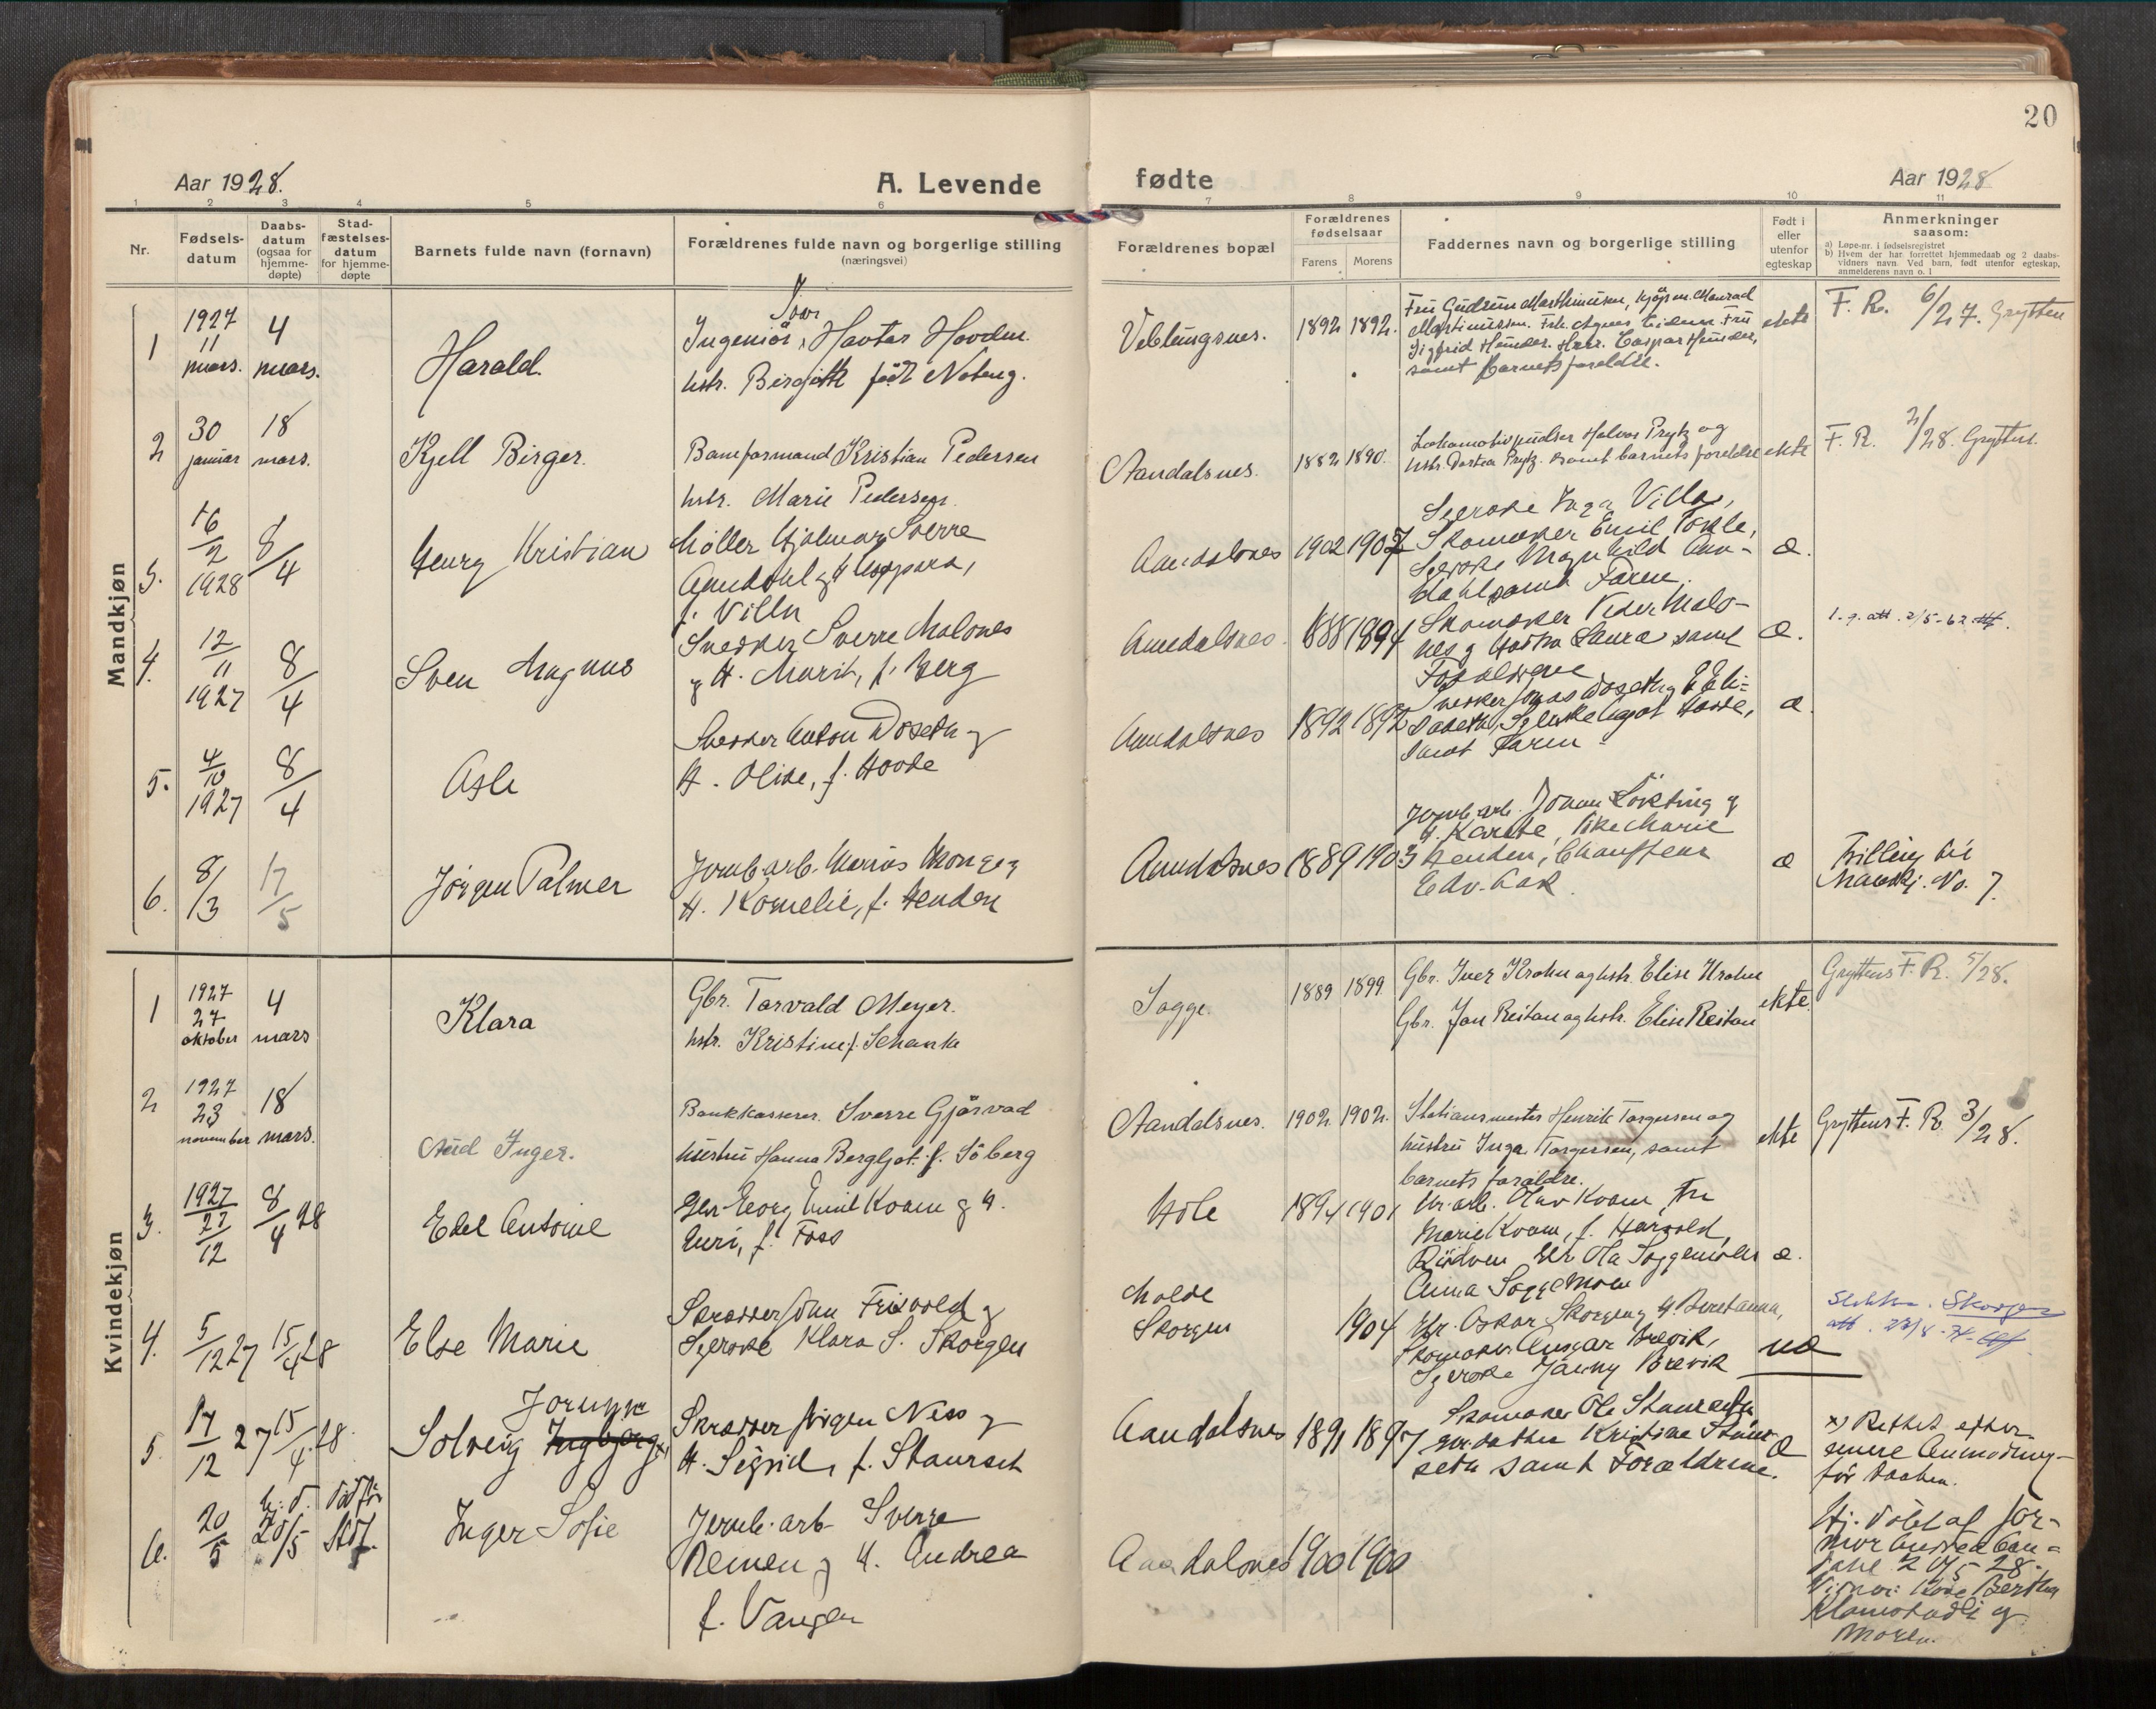 20
Aar 1928.
A. Levende
fødte
Aar 1928
1 2 3 4 5 6 7 8 9 10 11
Nr.
Fødsels-
datum
Daabs-
datum
(ogsaa for
hjemme-
døpte)
Stad-
fæstelses-
datum
for hjemme-
døpte
Barnets fulde navn (fornavn)
Forældrenes fulde navn og borgerlige stilling
(næringsvei)
Forældrenes bopæl
Forældrenes
fødselsaar
Farens Morens
Faddernes navn og borgerlige stilling
Født i
eller
utenfor
egteskap
Anmerkninger
saasom:
a) Løpe-nr. i fødselsregistret
b) Hvem der har forrettet hjemmedaab og 2 daabs-
vidners navn. Ved barn, født utenfor egteskap,
anmelderens navn o. l
Mandkjøn
1
1927
11
mars.
4
mars.
Harald.
Ingeniør, Ivar Havtor Hovden.
hstr. Birgitte født
Veblungsnes.
1892 1892.
Fru Gudrun Marthinussen, kjøpm. Monrad
Martinussen. Frk. Agnes Eidem. Fru
Sigfrid Heinder. Herr. Caspar Heinder,
samt barnets foreldre.
ekte
F. R. 6/27. Grytten
2
30
januar
18
mars.
Kjell Birger.
Baneformand Kristian Pedersen
hstr. Marie Pedersen.
Aandalsnes.
1882 1890.
Lokomotivpudser Halvor Prytz og
hstr. Dortea Prytz. samt barnets foreldre
ekte
F. R. 2/28. Grytten.
3.
16/2
1928
8/4
Henry Kristian
Møller Hjalmar Sverre
Aandahl og H
f. Villa
Aandalsnes
1902 1907
Syerske Inga Villa,
Skomaker Emil Tokle,
Syerske Magnhild Aan-
dahl samt Faren.
æ.
4.
12/11
1927
8/4
Sven Magnus
Snedker Sverre Malones
og H. Marit, f. Berg
Aandalsnes.
1888 1894
Skomaker Peder Malo-
nes og Hustru Laura samt
Forældrene
æ.
1. g. att. 2/5-62
5.
4/10
1927
8/4
Asle
Snedker Anton Voseth og
H. Olise, f. Hovde
Aandalsnes
1892 1892
Snedker Jonas Voseth og E Eli-
sabeth, Syerske Agot Hovde,
samt Faren
æ
6.
8/3
17/5
Jørgen Palmer
Jernb. arb. Marius Monge og
H. Kornelie, f. Henden
Aandalsnes
1889 1903
Jernb. arb. Johan Løkting og
H. Karste, Pike Marie
Henden, Chauffeur
Edv. Aak.
æ
Tvilling til
Mandkj. No. 7.
Kvindekjøn
1
1927
27
oktober
4
mars
Klara
Gbr. Torvald Meyer.
hstr. Kristine f. Schanke
Sogge.
1889 1899
Gbr. Iver Krohn og hstr. Elise Krohn
Gbr. Jon Reitan og hstr. Elise Reitan
ekte.
Gryttens F. R. 5/28.
2
1927
23
november
18
mars.
Aud Inger.
Bankkasserer. Sverre Gjørvad
hustru Hanna Bergljot. f. Søberg
Aandalsnes.
1902 1902.
Stationsmester Henrik Torgersen og
hustru Inga Torgersen, samt
barnets foreldre.
ekte
Gryttens F. R. 3/28.
3.
1927
27/12
8/4 28
Edel Antonie
Gbr. Georg Emil Kvam og H.
Guri, f. Foss
Hole
1894 1901
Gr. arb. Olav Kvam, Fru
Marie Kvam, f. Harvold,
Rødven, Gbr. Ola Soggemoen
Anna Soggemoen
æ.
4.
5/12 27
15/4 28
Else Marie
Skrædder John Frisvold og
Syerske Klara S. Skorgen
Molde
Skorgen
1904
Gbr. Oskar Skorgen og H. Beret Anna,
Skomaker Ansgar Brevik,
Syerske Jenny Brevik
uæ
Slekten Skorgen
att. 22/8-
5.
17/12 27
15/4 28.
Solveig Ingbjørg x) Jorunn
Skrædder Jørgen Ness og
H. Sigrid, f. Staurset
Aandalsnes
1891 1897
Skomaker Ole Staurseth
gbr. datter Kristine Staur-
seth samt Forældrene.
æ
x) Rettet efter
senere Anmodning
før Daaben.
6.
20/5
h. d.
20/5
Død før
Stdf.
Inger Sofie
Jernb. arb. Sverre
Nemen og H. Andrea
f. Vangen
Aandalsnes
1900 1900
Hj. døbt af Jor-
mor Andrea Aan-
dahl 20/5 28.
Vidner: Kone Berthe
Klomstadli og
Moren.